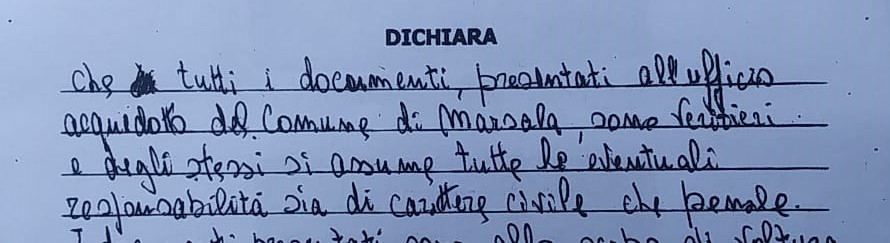 DICHIARA
che tutti i documenti, presentati all'ufficio
acquidotto del Comune di Marsala, sono veritieri
e degli stessi si assume tutte le eventuali
responsabilità sia di carattere civile che penale.